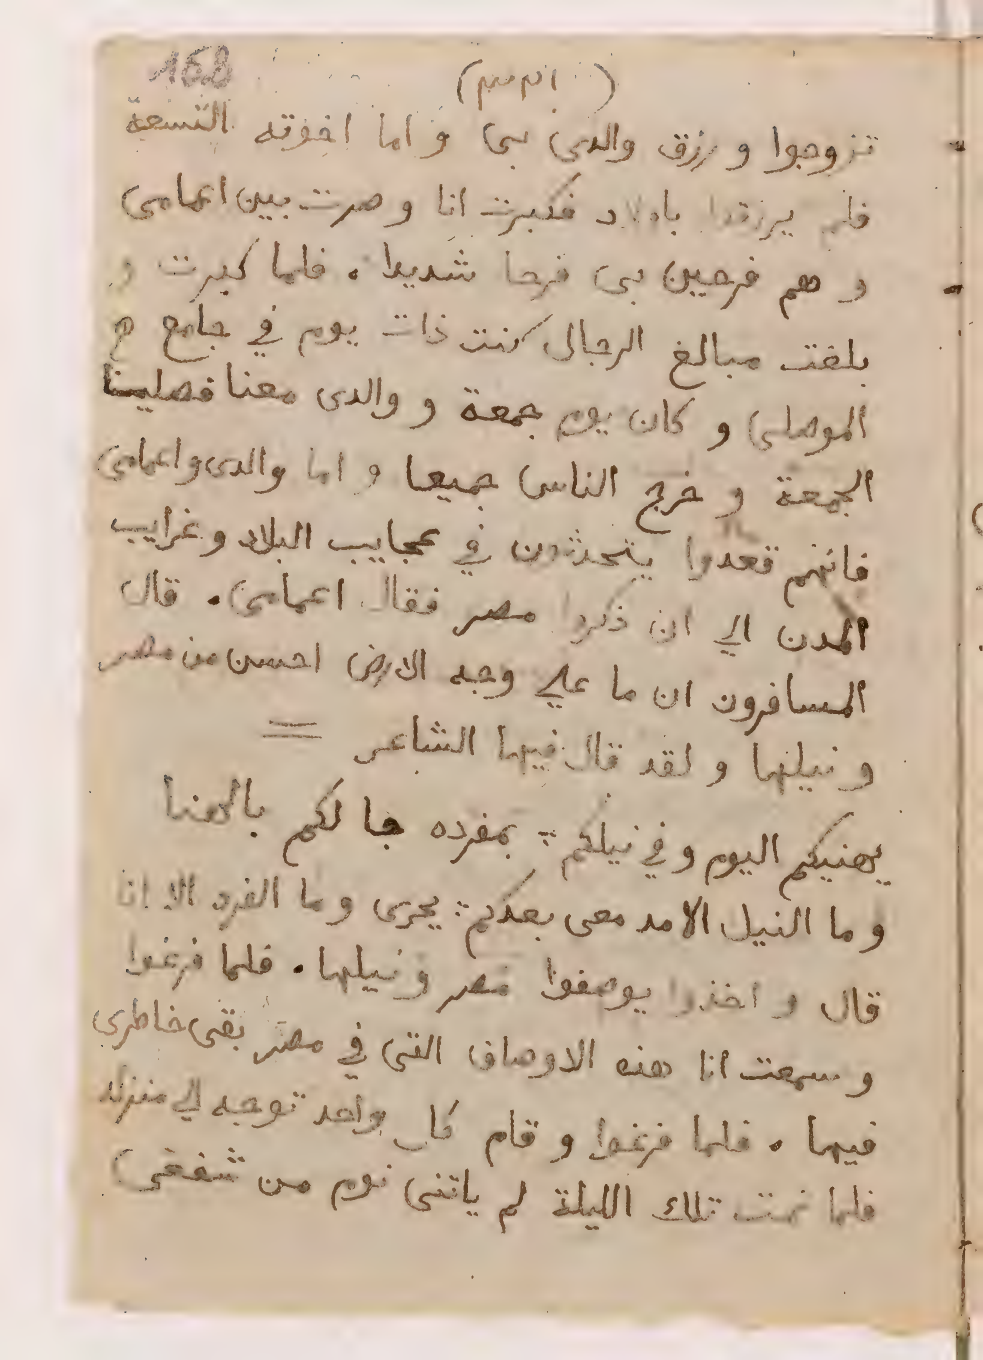 168
تزوجوا و رزق والدى بى و اما اخوته التسعة
فلم يرزقوا باولاد فكبرت انا و صرت بين اعمامى
و هم فرحين بى فرحا شديدا . فلما كبرت و
بلغت مبالغ الرجال كنت ذات يوم في جامع
الموصلى و كان يوم جمعة و والدى معنا فصلينا
الجمعة و خرج الناس جميعا و اما والدى و اعمامى
فانهم قعدوا يتحدثون في عجايب البلاد و غرايب
المدن الي ان ذكروا مصر فقال اعمامى . قال
المسافرون ان ما علي وجه الارض احسن من مصر
و نيلها و لقد قال فيها الشاعر
يهنيكم اليوم و في نيلكم ∴ بمفرده جا لكم بالهنا
و ما النيل الا مد معى بعدكم ∴ يجرى و ما الفرد الا انا
قال و اخذوا يوصفوا مصر و نيلها . فلما فرغوا
و سمعت انا هذه الاوصاف التى في مصر بقى خاطرى
فيها . فلما فرغوا و قام كل واحد توجه الي منزله
فلما نمت تلك الليلة لم ياتنى نوم من شغفى